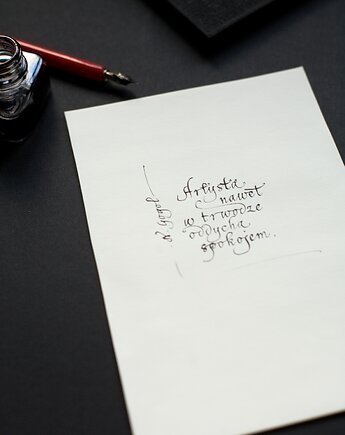 Artysta
nawet
w trwodze
oddycha
spokojem.